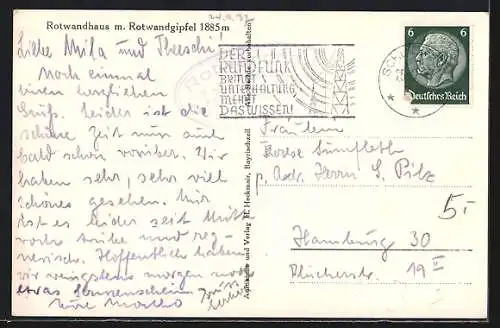 Rotwandhaus m. Rotwandgipfel 1885 m
Liebe Mila und Threschi!
Noch einmal
einen herzlichen
Gruß. Leider ist die
schöne Zeit nur all
bald schon vorüber. Wir
haben sehr, sehr viel
schönes gesehen. Nur
ist es leider seit Mitt
woch trübe und reg-
nerisch. Hoffentlich haben
wir wenigstens morgen noch
etwas Sonnenschein
Eure
DER
RUNDFUNK
BRINGT
UNTERHALTUNG
MEHRT
DAS WISSEN!
6 6
Deutsches Reich
Aufnahme und Verlag H. Heckmair, Bayrischzell
Alle Rechte vorbehalten
Fräulein
p. Adr. Herrn S. Pilz
5.-
Hamburg 30
19 II